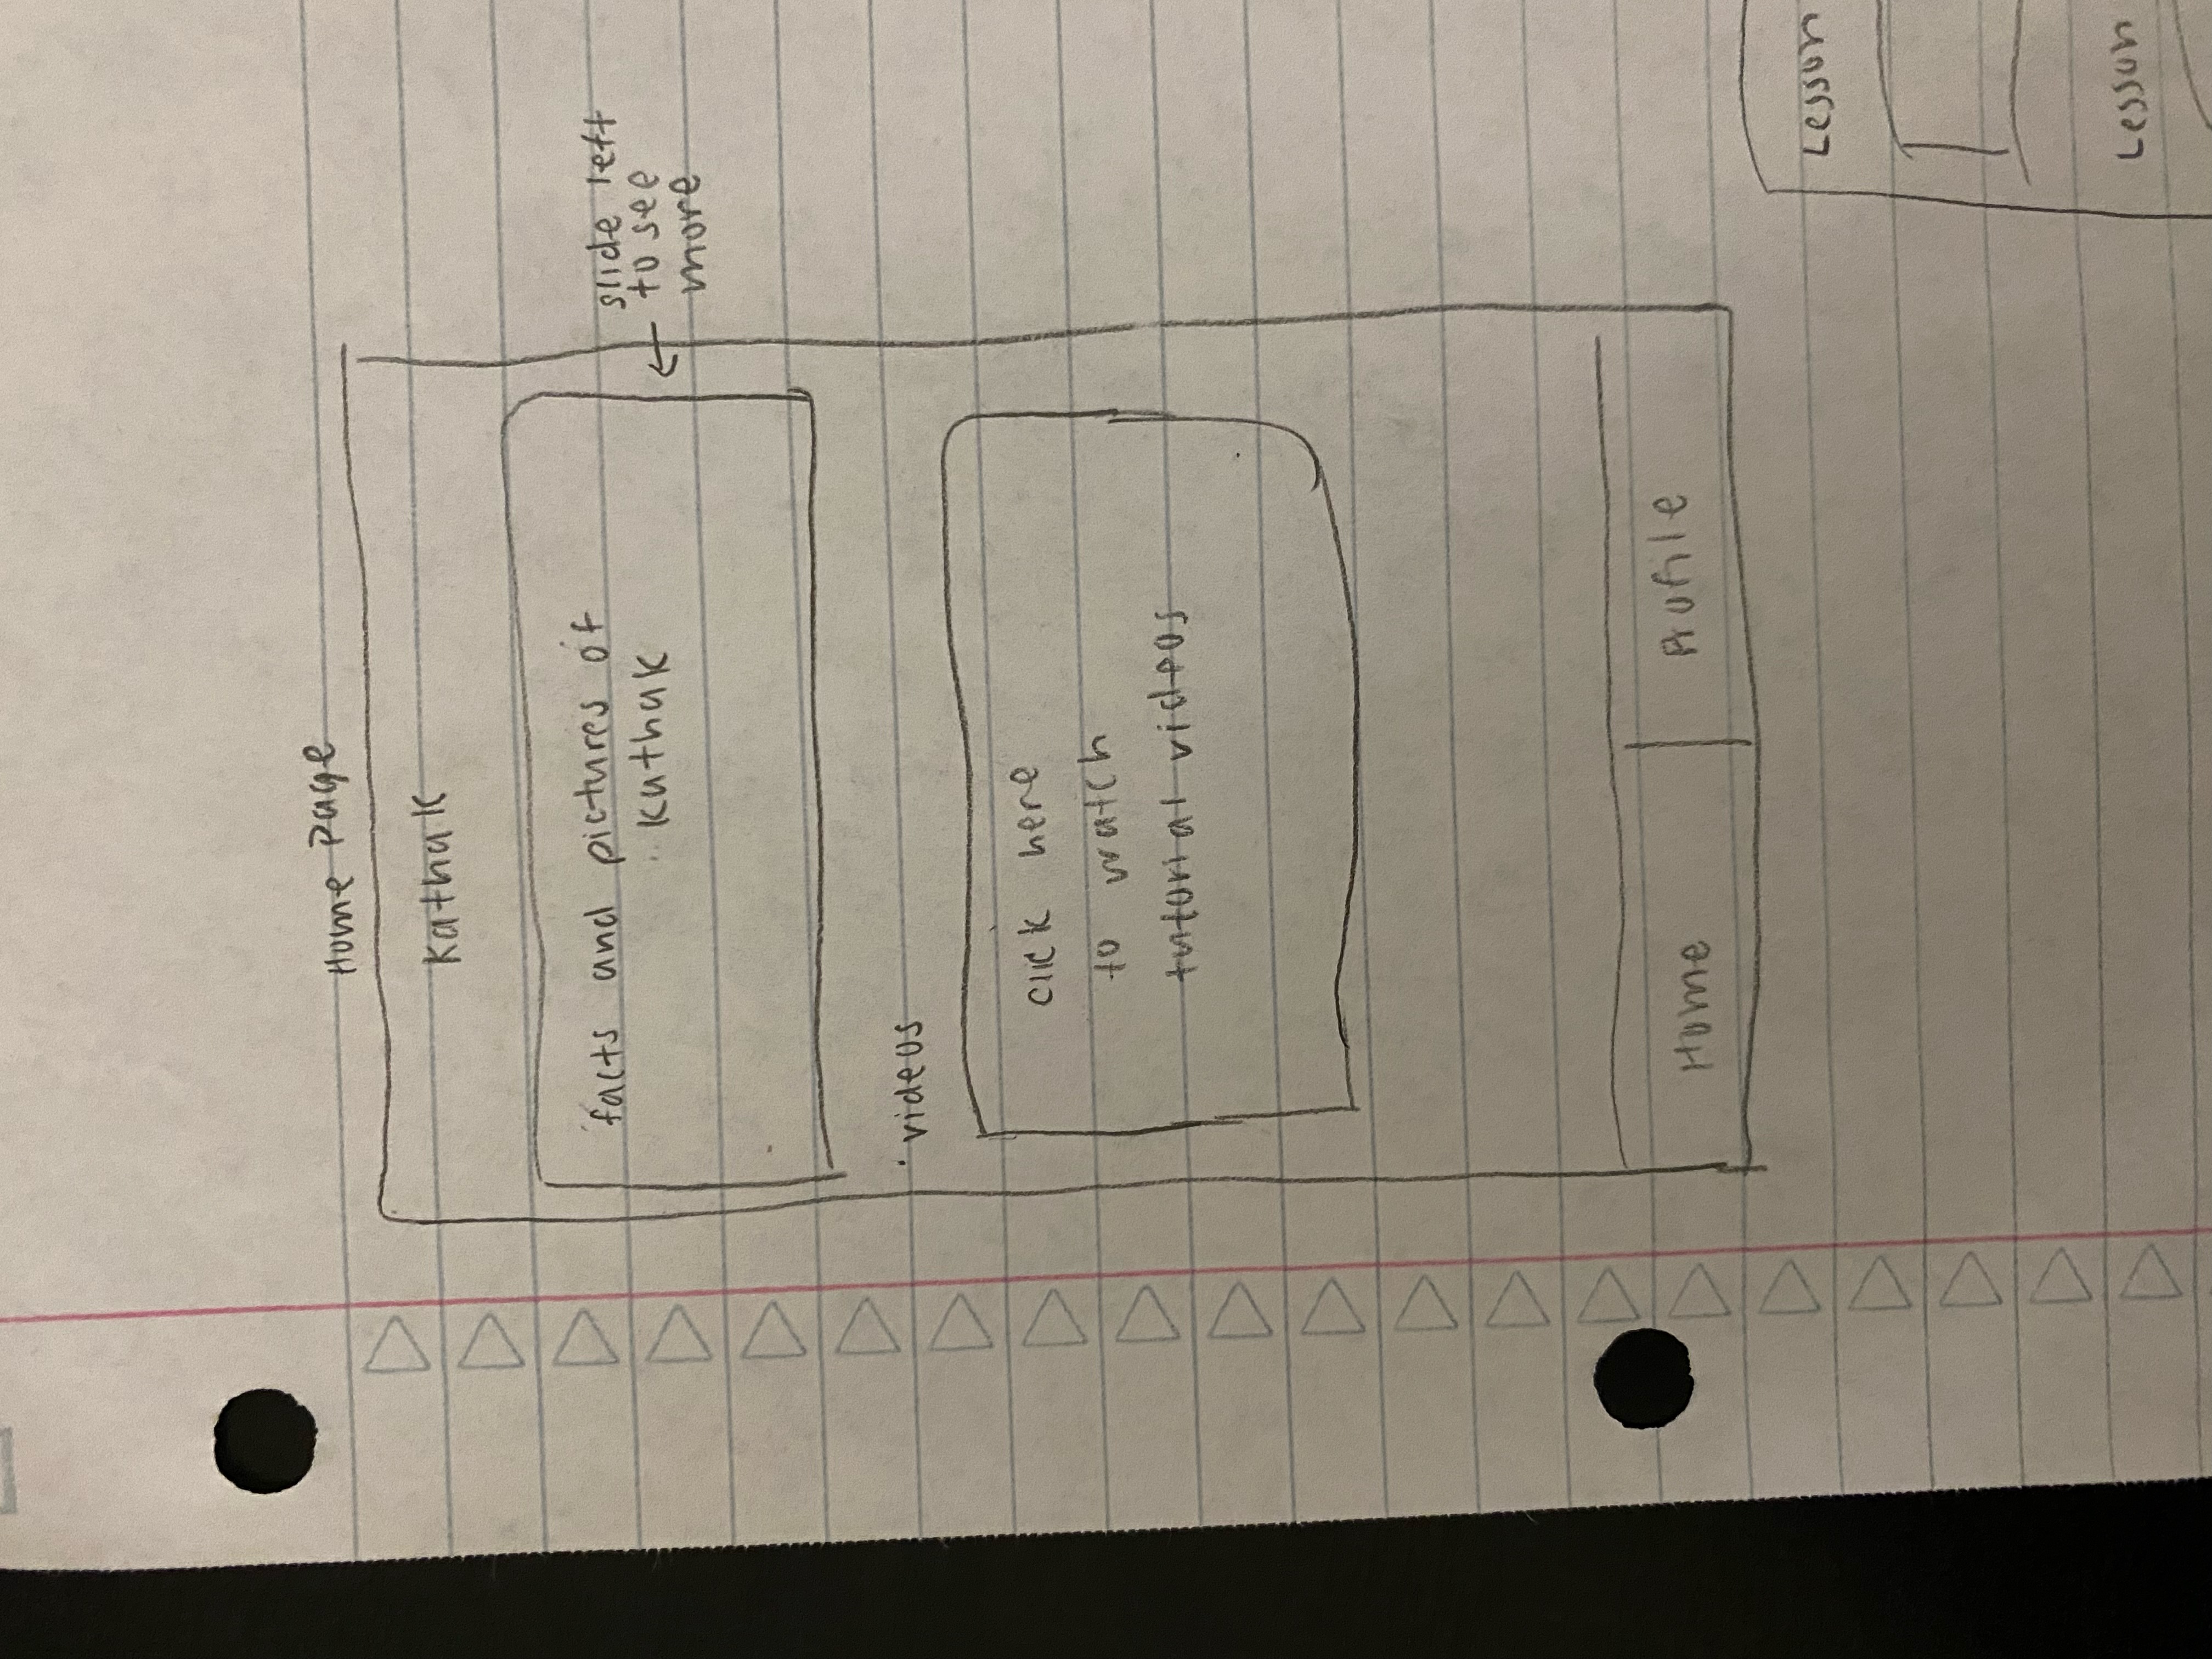 Home Page
Kathak
facts and pictures of
Kathak
slide left
to see
more
videos
click here
to watch
tutorial videos
Home
Profile
Lesson
Lesson